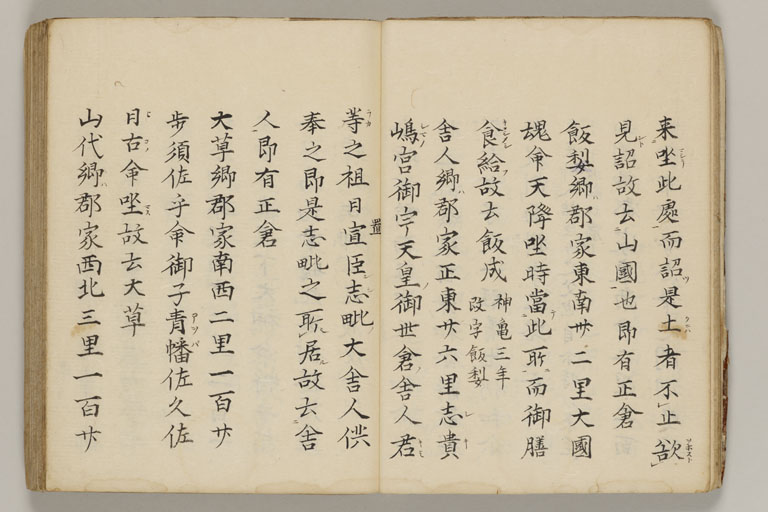 来坐此處而詔是土者不止欲
見詔故去山國也即有正倉
飯梨郷郡家東南卅二里大國
魂命天降坐時當此所而御膳
食給故去飯成 神亀三年
改字飯梨
舎人郷郡家正東廿六里志貴
嶋宮御宇天皇御世倉舎人君
等之祖日置臣志毗大舎人供
奉之即是志毗之所居故去舎
人即有正倉
大草郷郡家南西二里一百廿
歩須佐乎命御子青幡佐久佐
日古命坐故去大草
山代郷郡家西北三里一百廿